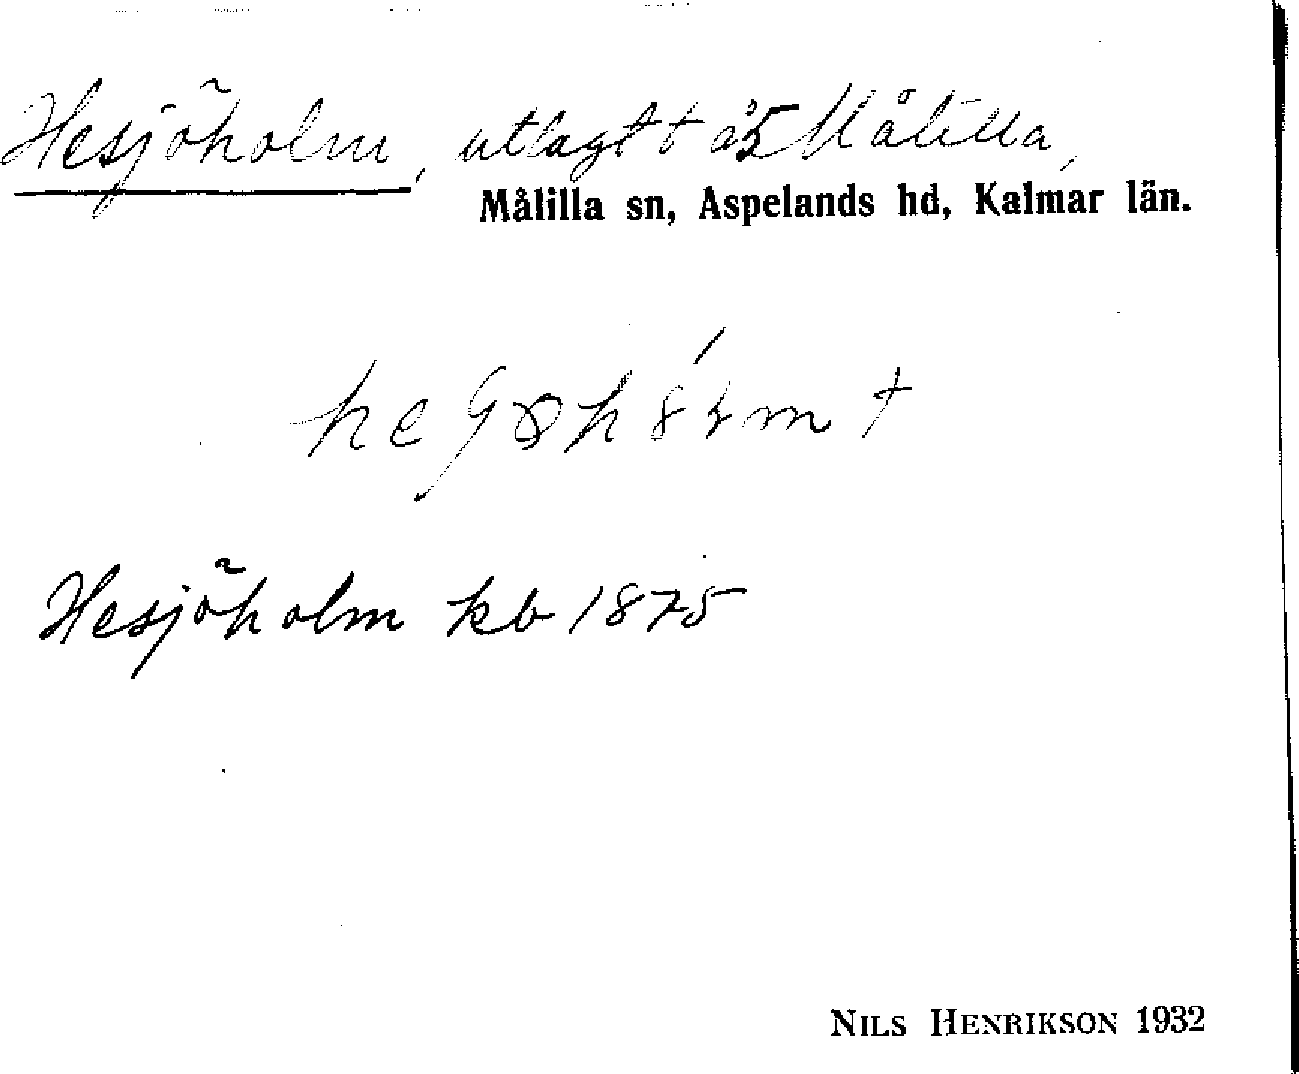 Hesjöholm, utlagt t å5 Målilla,
Målilla sn, Aspelands hd, Kalmar län.
Hesjöholm kb 1875
NILS HENRIKSON 1932